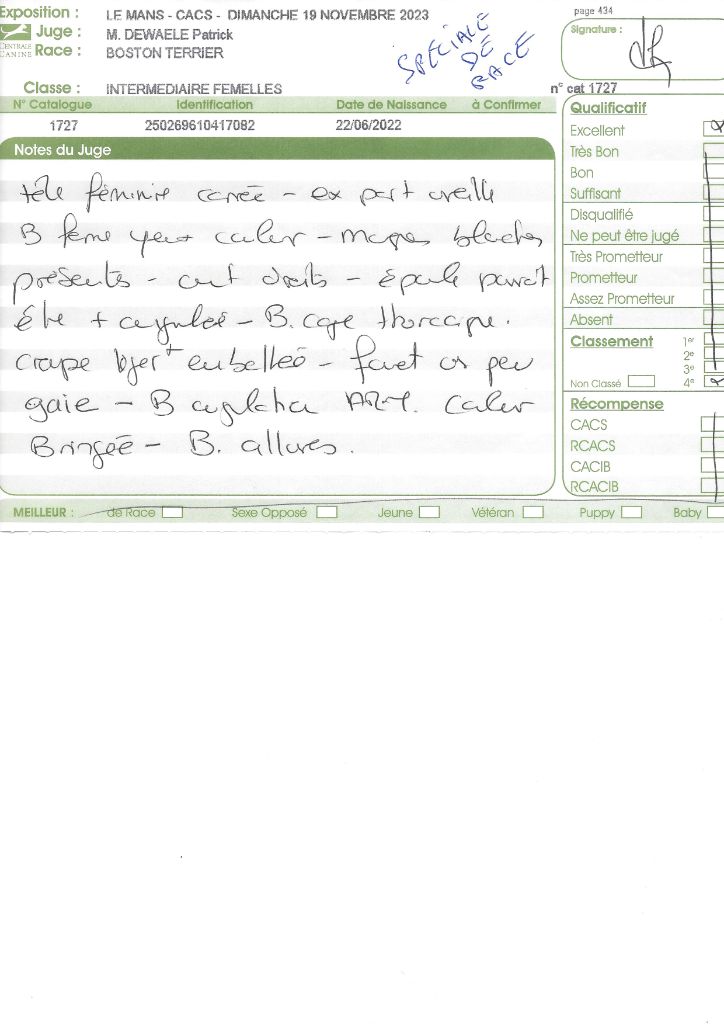 Exposition : LE MANS - CACS - DIMANCHE 19 NOVEMBRE 2023
Juge : M. DEWAELE Patrick
CENTRALE CANINE
Race : BOSTON TERRIER
SPECIALE DE RACE
page 434
Signature :
Classe : INTERMEDIAIRE FEMELLES
n° cat 1727
N° Catalogue Identification Date de Naissance à Confirmer
1727 250269610417082 22/06/2022
Notes du Juge
tête féminine carrée - ex port oreille
B forme yeux couleur - marques blanches
présentes - ant droits - épaule pourrait
être + angulée - B. cage thoracique.
croupe légert emballée - fouet un peu
gaie - B angulation ARR. couleur
Bringée - B. allures.
Qualificatif
Excellent
Très Bon
Bon
Suffisant
Disqualifié
Ne peut être jugé
Très Prometteur
Prometteur
Assez Prometteur
Absent
Classement 1er
2e
3e
Non Classé 4e
Récompense
CACS
RCACS
CACIB
RCACIB
MEILLEUR : de Race Sexe Opposé Jeune Vétéran Puppy Baby